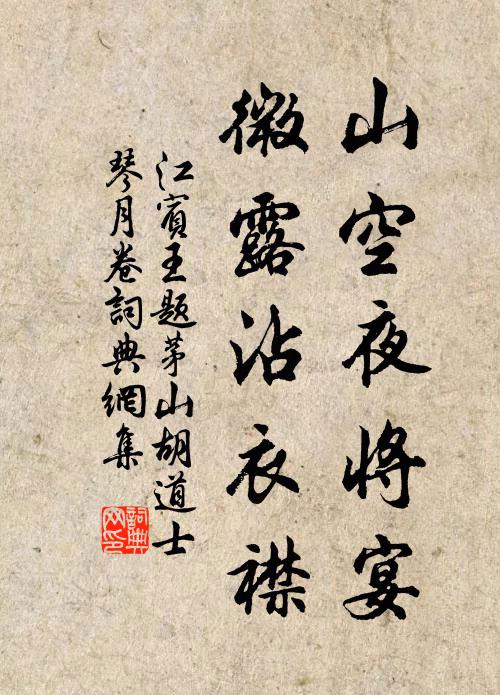 山空夜將宴
微露沾衣襟
江賓王題茅山胡道士
琴月卷詞典網集
詞典
网印